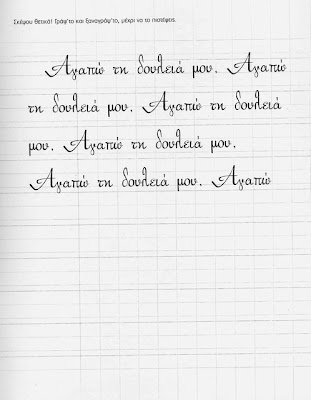 Σκέψου θετικά! Γράψ'το και ξαναγράψ'το, μέχρι να το πιστέψεις.
Αγαπώ τη δουλειά μου. Αγαπώ
τη δουλειά μου. Αγαπώ τη δουλειά
μου. Αγαπώ τη δουλειά μου.
Αγαπώ τη δουλειά μου. Αγαπώ